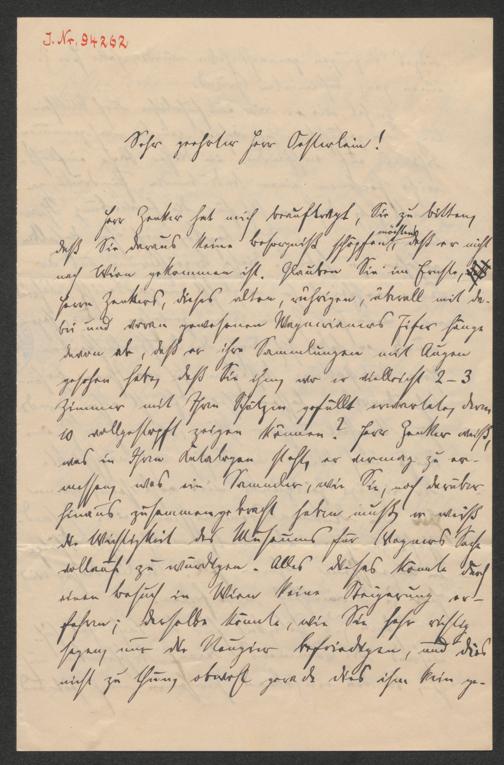 J. Nr. 94262
Sehr geehrter Herr Oesterlein!
Herr Zenker hat mich beauftragt, Sie zu bitten,
daß Sie daraus keine Besorgniß schöpfen möchten, daß er nicht
nach Wien gekommen ist. Glauben Sie im Ernste,
Herrn Zenkers, dieses alten, rührigen, überall mit da-
bei und voran gewesenen Wagnerianers Eifer hänge
davon ab, daß er ihre Sammlungen mit Augen
gesehen habe, daß Sie ihm, wo er vielleicht 2-3
Zimmer mit Ihren Schätzen gefüllt erwartete, deren
10 vollgestopft zeigen können? Herr Zenker weiß,
was in Ihren Katalogen steht, er vermag zu er-
messen, was ein Sammler, wie Sie, noch darüber
hinaus zusammengebracht haben muß, er weiß
die Wichtigkeit des Museums für Wagners Sache
vollauf zu würdigen. Alles dieses konnte durch
einen Besuch in Wien keine Steigerung er-
fahren; derselbe könnte, wie Sie sehr richtig
sagen, nur die Neugier befriedigen, und dies
nicht zu thun, gerade dies ihm kein ge-